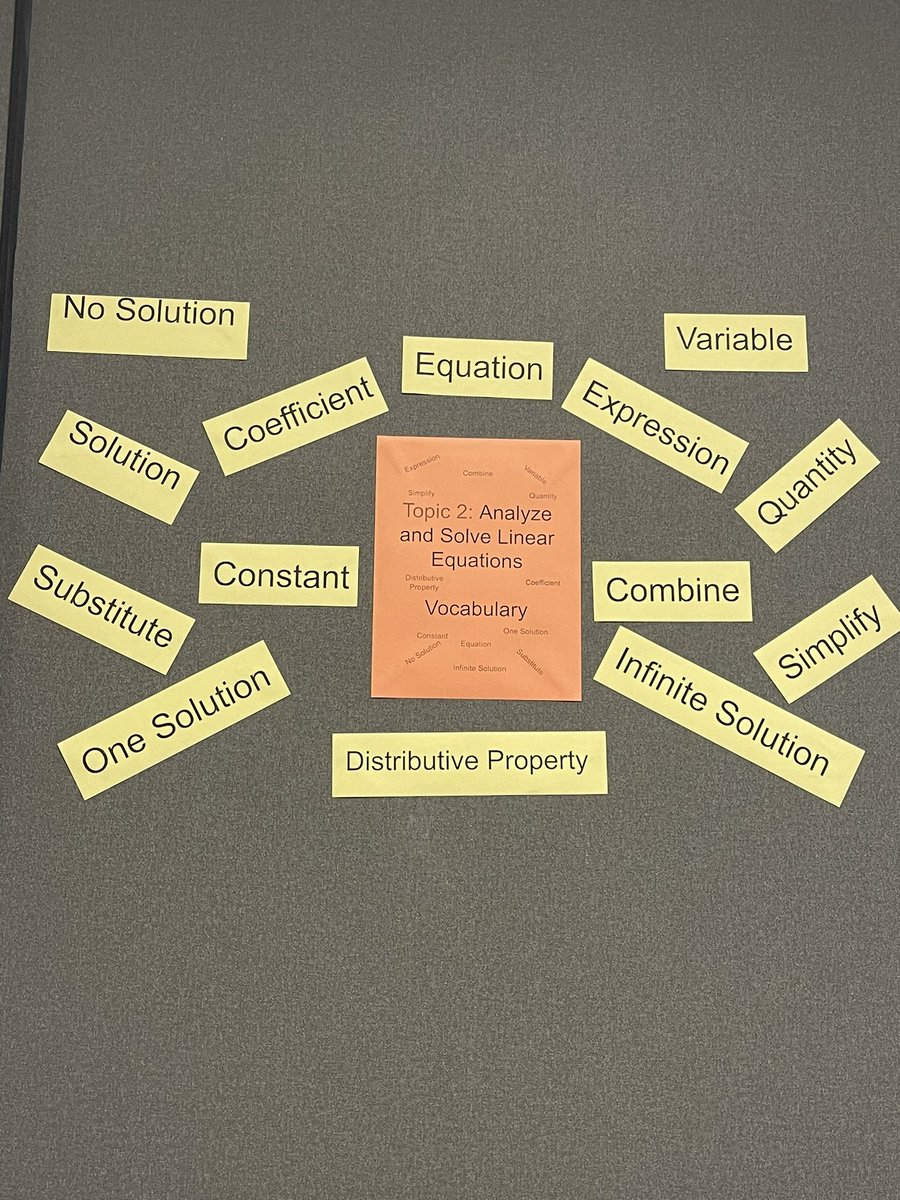 No Solution
Variable
Equation
Coefficient
Expression
Solution
Quantity
Expression
Combine
Variable
Simplify
Quantity
Topic 2: Analyze
and Solve Linear
Equations
Distributive
Property
Coefficient
Vocabulary
Constant
One Solution
No Solution
Equation
Substitute
Infinite Solution
Constant
Combine
Substitute
Simplify
One Solution
Infinite Solution
Distributive Property